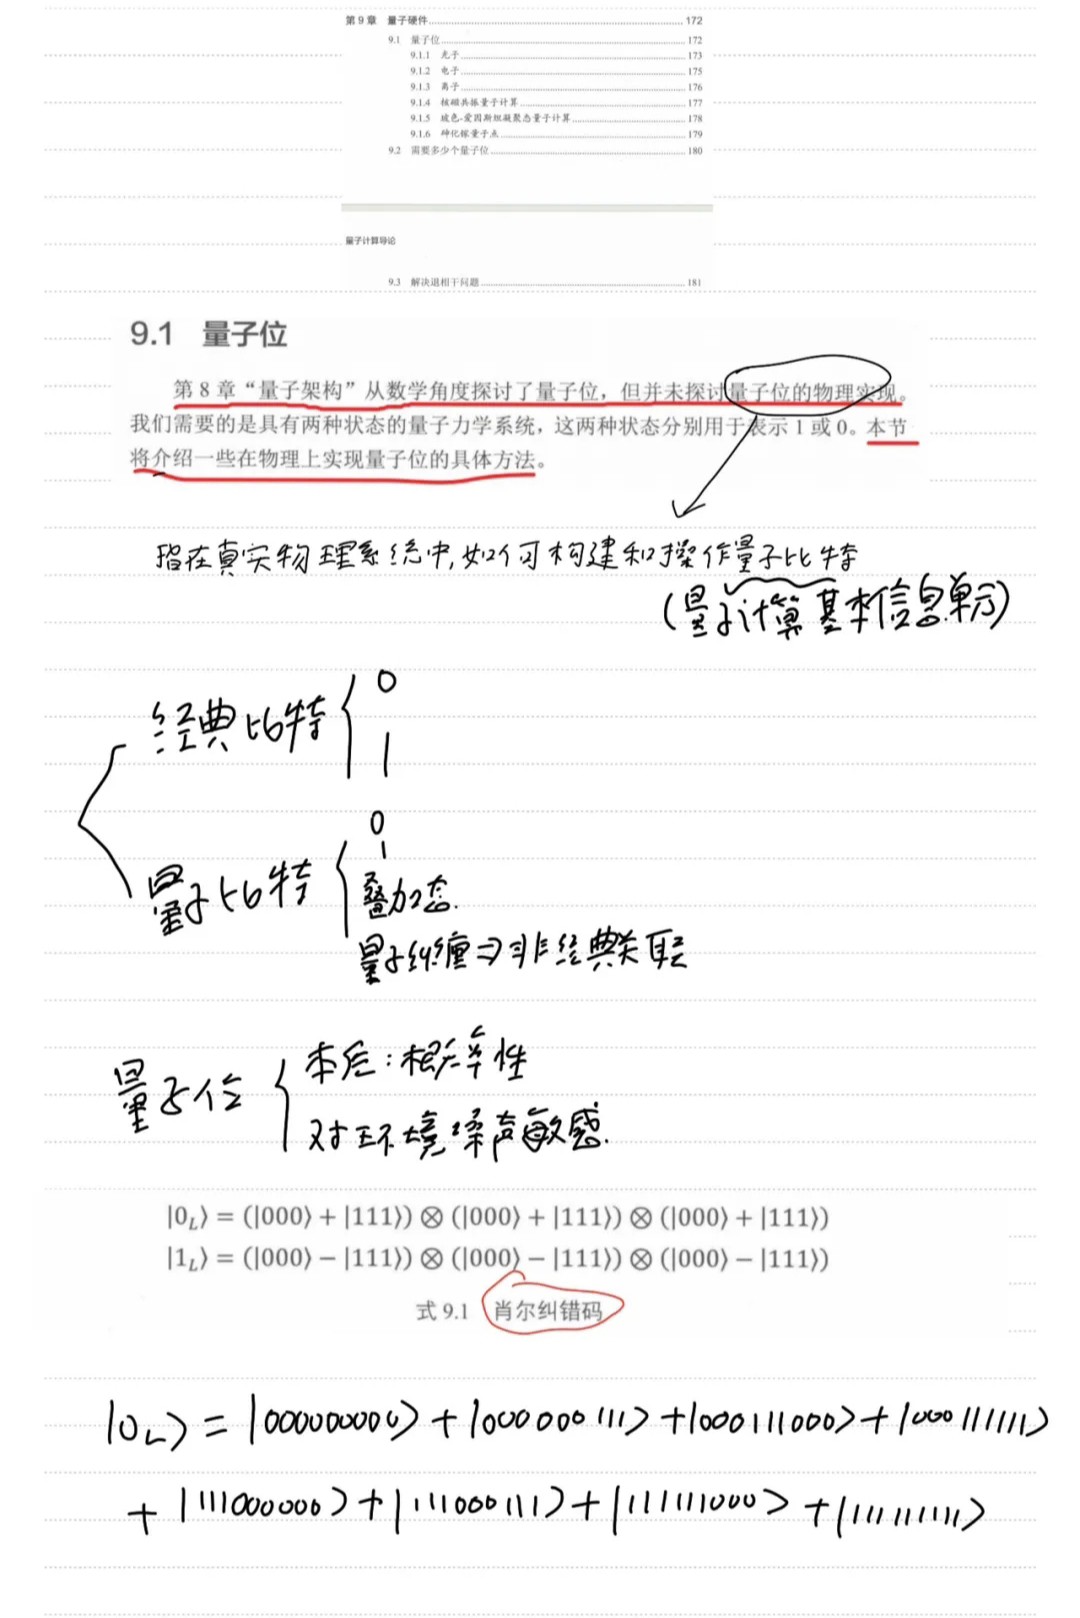 第9章 量子硬件 172
9.1 量子位 172
9.1.1 光子 173
9.1.2 电子 175
9.1.3 离子 176
9.1.4 核磁共振量子计算 177
9.1.5 玻色-爱因斯坦凝聚态量子计算 178
9.1.6 砷化镓量子点 179
9.2 需要多少个量子位 180
量子计算导论
9.3 解决退相干问题 181
9.1 量子位
第 8 章“量子架构”从数学角度探讨了量子位，但并未探讨量子位的物理实现。
我们需要的是具有两种状态的量子力学系统，这两种状态分别用于表示 1 或 0。本节
将介绍一些在物理上实现量子位的具体方法。
指在真实物理系统中,如何构建和操作量子比特
(量子计算基本信息单元)
经典比特 { 0
1
量子比特 { 0
1
叠加态.
量子纠缠⇒非经典关联
量子位 { 本质:概率性
对环境噪声敏感.
|0_L⟩ = (|000⟩ + |111⟩) ⊗ (|000⟩ + |111⟩) ⊗ (|000⟩ + |111⟩)
|1_L⟩ = (|000⟩ − |111⟩) ⊗ (|000⟩ − |111⟩) ⊗ (|000⟩ − |111⟩)
式 9.1 肖尔纠错码
|0_L⟩ = |000000000⟩ + |000000111⟩ + |000111000⟩ + |000111111⟩
+ |111000000⟩ + |111000111⟩ + |111111000⟩ + |111111111⟩